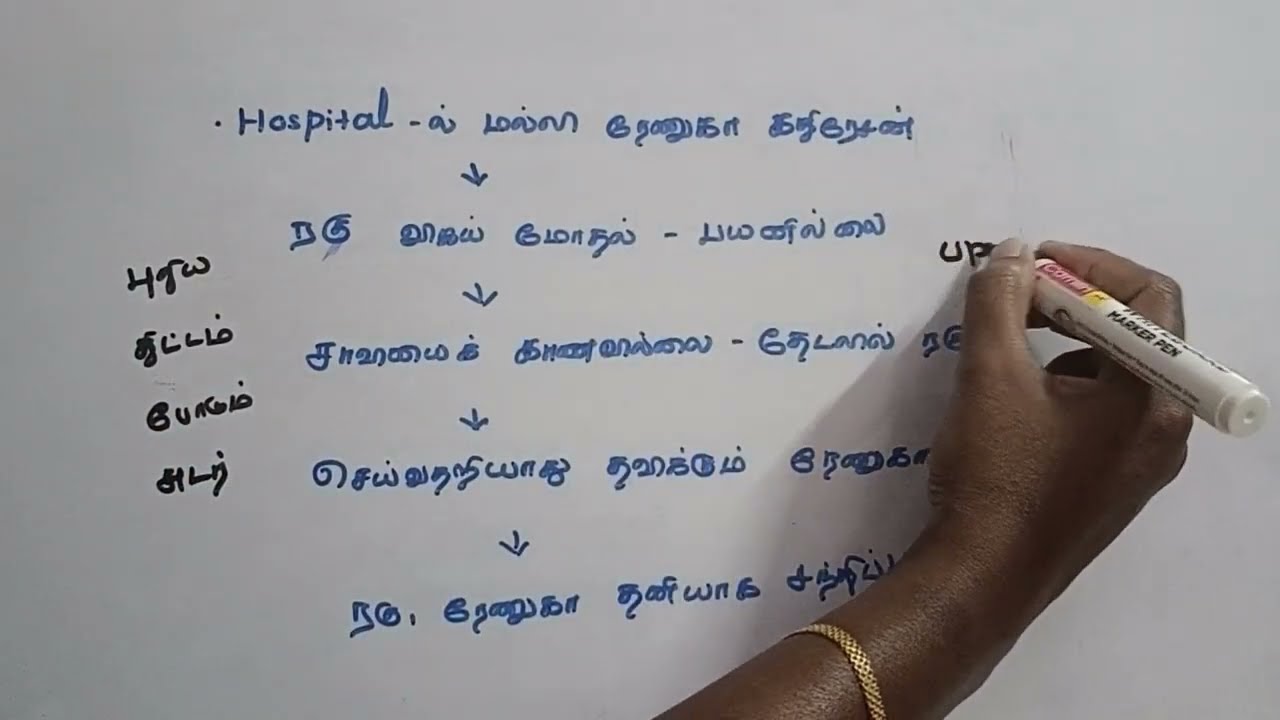 . Hospital - ல் மல்லி ரேணுகா கதிரேசன்
↓
ரகு விஜய் மோதல் - பயனில்லை
↓
சாஹமைக் காணவில்லை - தேடலில் ரகு
↓
செய்வதறியாது தவிக்கும் ரேணுகா
↓
ரகு, ரேணுகா தனியாக சந்திப்
புதிய
திட்டம்
போடும்
அடர்
Camlin
MARKER PEN